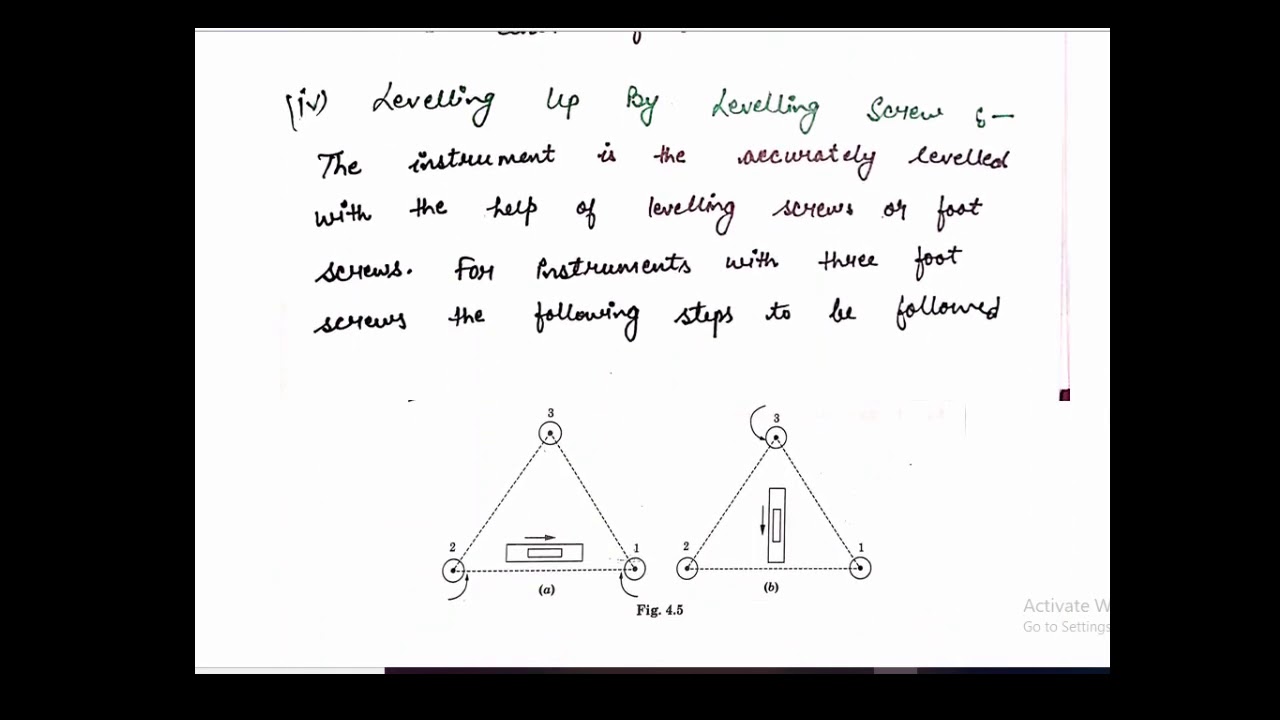 (iv) Levelling Up By Levelling Screw :-
The instrument is the accurately levelled
with the help of levelling screws or foot
screws. For Instruments with three foot
screws the following steps to be followed
3
3
2
1
2
1
(a)
(b)
Fig. 4.5
Activate W
Go to Settings